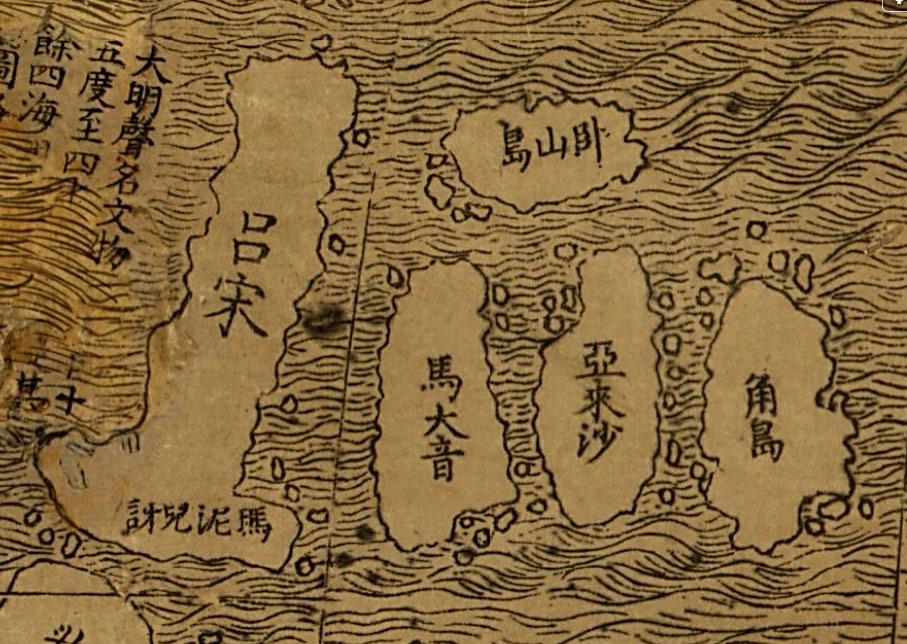 大明聲名文物
十
五度至四十
餘四海
卧山島
呂宋
角島
亞來沙
馬大音
瑪泥兒訝